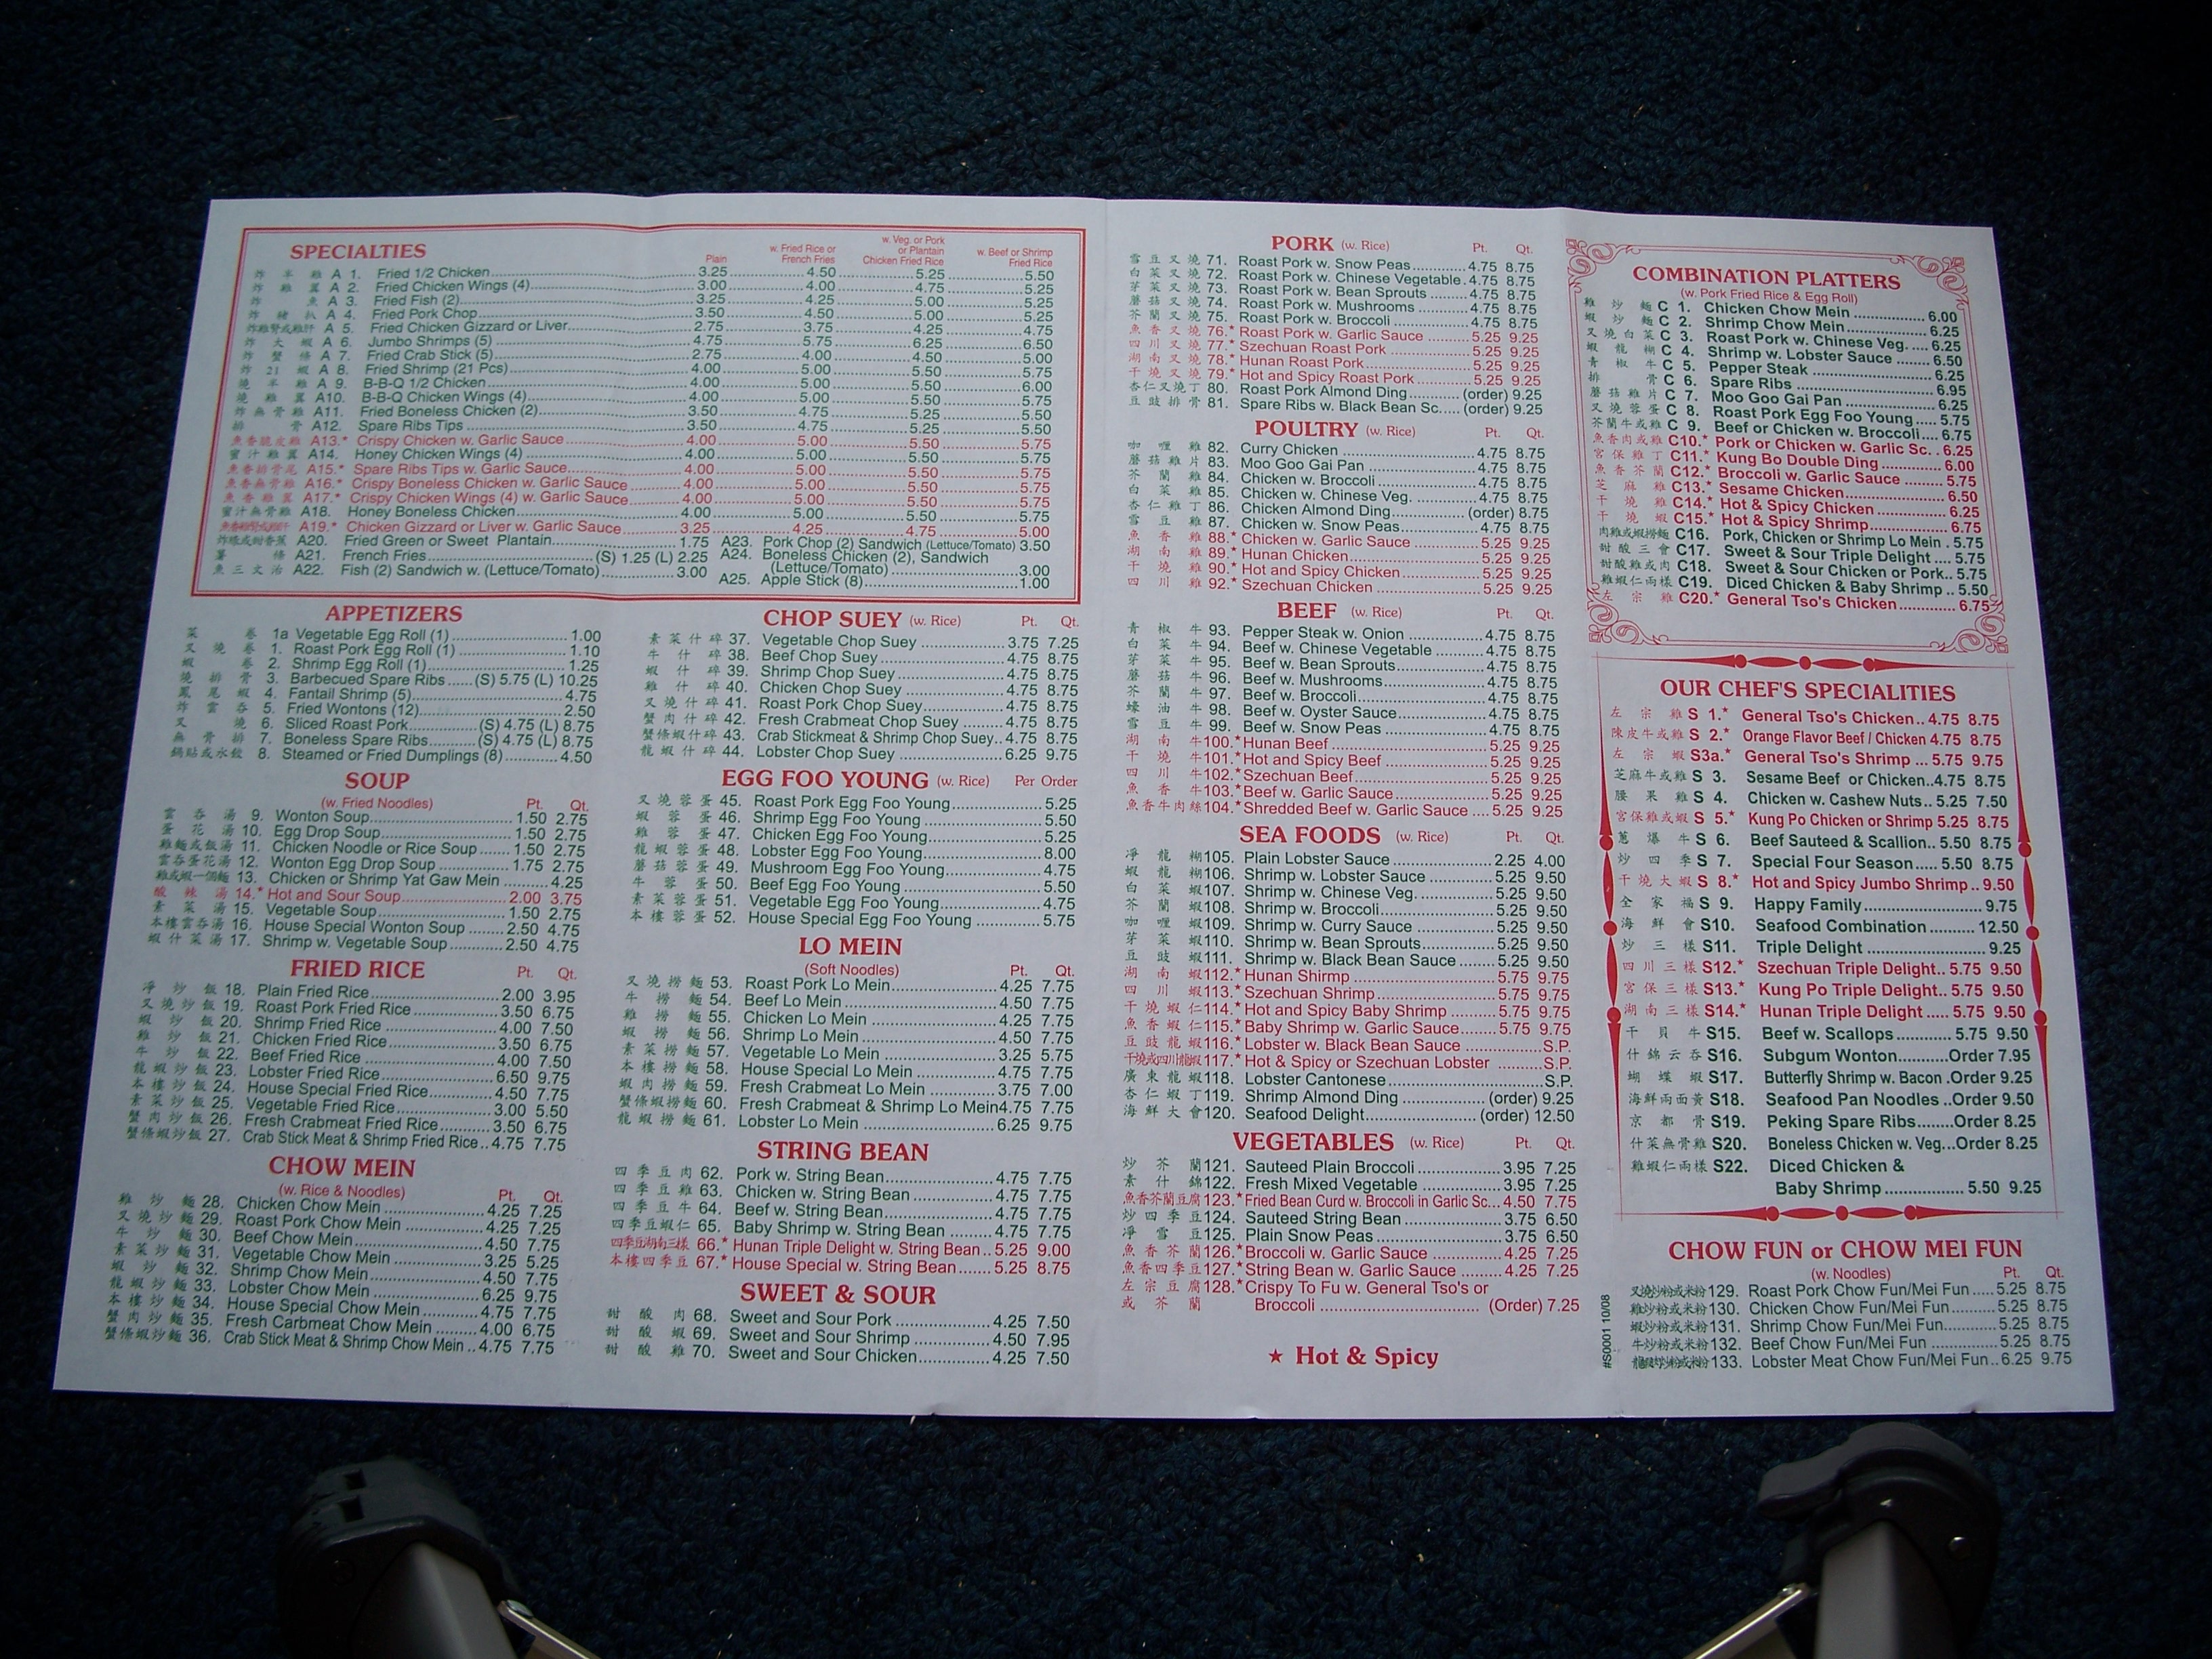 SPECIALTIES
Plain
w. Fried Rice or French Fries
w. Veg. or Pork or Plantain Chicken Fried Rice
w. Beef or Shrimp Fried Rice
炸半雞 A 1. Fried 1/2 Chicken 3.25 4.50 5.25 5.50
炸雞翼 A 2. Fried Chicken Wings (4) 3.00 4.00 4.75 5.25
炸魚 A 3. Fried Fish (2) 3.25 4.25 5.00 5.25
炸豬扒 A 4. Fried Pork Chop 3.50 4.50 5.00 5.25
炸雞腎或雞肝 A 5. Fried Chicken Gizzard or Liver 2.75 3.75 4.25 4.75
炸大蝦 A 6. Jumbo Shrimps (5) 4.75 5.75 6.25 6.50
炸蟹條 A 7. Fried Crab Stick (5) 2.75 4.00 4.50 5.00
炸21蝦 A 8. Fried Shrimp (21 Pcs) 4.00 5.00 5.50 5.75
燒半雞 A 9. B-B-Q 1/2 Chicken 4.00 5.00 5.50 6.00
燒雞翼 A10. B-B-Q Chicken Wings (4) 4.00 5.00 5.50 5.75
炸無骨雞 A11. Fried Boneless Chicken (2) 3.50 4.75 5.25 5.50
排骨 A12. Spare Ribs Tips 3.50 4.75 5.25 5.50
魚香脆皮雞 A13.* Crispy Chicken w. Garlic Sauce 4.00 5.00 5.50 5.75
蜜汁雞翼 A14. Honey Chicken Wings (4) 4.00 5.00 5.50 5.75
魚香排骨尾 A15.* Spare Ribs Tips w. Garlic Sauce 4.00 5.00 5.50 5.75
魚香無骨雞 A16.* Crispy Boneless Chicken w. Garlic Sauce 4.00 5.00 5.50 5.75
魚香雞翼 A17.* Crispy Chicken Wings (4) w. Garlic Sauce 4.00 5.00 5.50 5.75
蜜汁無骨雞 A18. Honey Boneless Chicken 4.00 5.00 5.50 5.75
A19.* Chicken Gizzard or Liver w. Garlic Sauce 3.25 4.25 4.75 5.00
A20. Fried Green or Sweet Plantain 1.75
薯條 A21. French Fries (S) 1.25 (L) 2.25
魚三文治 A22. Fish (2) Sandwich w. (Lettuce/Tomato) 3.00
A23. Pork Chop (2) Sandwich (Lettuce/Tomato) 3.50
A24. Boneless Chicken (2), Sandwich
(Lettuce/Tomato) 3.00
A25. Apple Stick (8) 1.00
APPETIZERS
菜卷 1a Vegetable Egg Roll (1) 1.00
叉燒卷 1. Roast Pork Egg Roll (1) 1.10
蝦卷 2. Shrimp Egg Roll (1) 1.25
燒排骨 3. Barbecued Spare Ribs (S) 5.75 (L) 10.25
鳳尾蝦 4. Fantail Shrimp (5) 4.75
炸雲吞 5. Fried Wontons (12) 2.50
叉燒 6. Sliced Roast Pork (S) 4.75 (L) 8.75
無骨排 7. Boneless Spare Ribs (S) 4.75 (L) 8.75
鍋貼或水餃 8. Steamed or Fried Dumplings (8) 4.50
SOUP
(w. Fried Noodles) Pt. Qt.
雲吞湯 9. Wonton Soup 1.50 2.75
蛋花湯 10. Egg Drop Soup 1.50 2.75
雞麵或飯湯 11. Chicken Noodle or Rice Soup 1.50 2.75
雲吞蛋花湯 12. Wonton Egg Drop Soup 1.75 2.75
雞或蝦一個麵 13. Chicken or Shrimp Yat Gaw Mein 4.25
酸辣湯 14.* Hot and Sour Soup 2.00 3.75
素菜湯 15. Vegetable Soup 1.50 2.75
本樓雲吞湯 16. House Special Wonton Soup 2.50 4.75
蝦什菜湯 17. Shrimp w. Vegetable Soup 2.50 4.75
FRIED RICE Pt. Qt.
淨炒飯 18. Plain Fried Rice 2.00 3.95
叉燒炒飯 19. Roast Pork Fried Rice 3.50 6.75
蝦炒飯 20. Shrimp Fried Rice 4.00 7.50
雞炒飯 21. Chicken Fried Rice 3.50 6.75
牛炒飯 22. Beef Fried Rice 4.00 7.50
龍蝦炒飯 23. Lobster Fried Rice 6.50 9.75
本樓炒飯 24. House Special Fried Rice 4.50 7.75
素菜炒飯 25. Vegetable Fried Rice 3.00 5.50
蟹肉炒飯 26. Fresh Crabmeat Fried Rice 3.50 6.75
蟹條蝦炒飯 27. Crab Stick Meat & Shrimp Fried Rice 4.75 7.75
CHOW MEIN
(w. Rice & Noodles) Pt. Qt.
雞炒麵 28. Chicken Chow Mein 4.25 7.25
叉燒炒麵 29. Roast Pork Chow Mein 4.25 7.25
牛炒麵 30. Beef Chow Mein 4.50 7.75
素菜炒麵 31. Vegetable Chow Mein 3.25 5.25
蝦炒麵 32. Shrimp Chow Mein 4.50 7.75
龍蝦炒麵 33. Lobster Chow Mein 6.25 9.75
本樓炒麵 34. House Special Chow Mein 4.75 7.75
蟹肉炒麵 35. Fresh Carbmeat Chow Mein 4.00 6.75
蟹條蝦炒麵 36. Crab Stick Meat & Shrimp Chow Mein 4.75 7.75
CHOP SUEY (w. Rice) Pt. Qt.
素菜什碎 37. Vegetable Chop Suey 3.75 7.25
牛什碎 38. Beef Chop Suey 4.75 8.75
蝦什碎 39. Shrimp Chop Suey 4.75 8.75
雞什碎 40. Chicken Chop Suey 4.75 8.75
叉燒什碎 41. Roast Pork Chop Suey 4.75 8.75
蟹肉什碎 42. Fresh Crabmeat Chop Suey 4.75 8.75
蟹條蝦什碎 43. Crab Stickmeat & Shrimp Chop Suey 4.75 8.75
龍蝦什碎 44. Lobster Chop Suey 6.25 9.75
EGG FOO YOUNG (w. Rice) Per Order
叉燒蓉蛋 45. Roast Pork Egg Foo Young 5.25
蝦蓉蛋 46. Shrimp Egg Foo Young 5.50
雞蓉蛋 47. Chicken Egg Foo Young 5.25
龍蝦蓉蛋 48. Lobster Egg Foo Young 8.00
蘑菇蓉蛋 49. Mushroom Egg Foo Young 4.75
牛蓉蛋 50. Beef Egg Foo Young 5.50
素菜蓉蛋 51. Vegetable Egg Foo Young 4.75
本樓蓉蛋 52. House Special Egg Foo Young 5.75
LO MEIN
(Soft Noodles) Pt. Qt.
叉燒撈麵 53. Roast Pork Lo Mein 4.25 7.75
牛撈麵 54. Beef Lo Mein 4.50 7.75
雞撈麵 55. Chicken Lo Mein 4.25 7.75
蝦撈麵 56. Shrimp Lo Mein 4.50 7.75
素菜撈麵 57. Vegetable Lo Mein 3.25 5.75
本樓撈麵 58. House Special Lo Mein 4.75 7.75
蝦肉撈麵 59. Fresh Crabmeat Lo Mein 3.75 7.00
蟹條蝦撈麵 60. Fresh Crabmeat & Shrimp Lo Mein 4.75 7.75
龍蝦撈麵 61. Lobster Lo Mein 6.25 9.75
STRING BEAN
四季豆肉 62. Pork w. String Bean 4.75 7.75
四季豆雞 63. Chicken w. String Bean 4.75 7.75
四季豆牛 64. Beef w. String Bean 4.75 7.75
四季豆蝦仁 65. Baby Shrimp w. String Bean 4.75 7.75
四季豆湖南三樣 66.* Hunan Triple Delight w. String Bean 5.25 9.00
本樓四季豆 67.* House Special w. String Bean 5.25 8.75
SWEET & SOUR
甜酸肉 68. Sweet and Sour Pork 4.25 7.50
甜酸蝦 69. Sweet and Sour Shrimp 4.50 7.95
甜酸雞 70. Sweet and Sour Chicken 4.25 7.50
PORK (w. Rice) Pt. Qt.
雪豆叉燒 71. Roast Pork w. Snow Peas 4.75 8.75
白菜叉燒 72. Roast Pork w. Chinese Vegetable 4.75 8.75
芽菜叉燒 73. Roast Pork w. Bean Sprouts 4.75 8.75
蘑菇叉燒 74. Roast Pork w. Mushrooms 4.75 8.75
芥蘭叉燒 75. Roast Pork w. Broccoli 4.75 8.75
魚香叉燒 76.* Roast Pork w. Garlic Sauce 5.25 9.25
四川叉燒 77.* Szechuan Roast Pork 5.25 9.25
湖南叉燒 78.* Hunan Roast Pork 5.25 9.25
干燒叉燒 79.* Hot and Spicy Roast Pork 5.25 9.25
杏仁叉燒丁 80. Roast Pork Almond Ding (order) 9.25
豆豉排骨 81. Spare Ribs w. Black Bean Sc. (order) 9.25
POULTRY (w. Rice) Pt. Qt.
咖喱雞 82. Curry Chicken 4.75 8.75
蘑菇雞片 83. Moo Goo Gai Pan 4.75 8.75
芥蘭雞 84. Chicken w. Broccoli 4.75 8.75
白菜雞 85. Chicken w. Chinese Veg. 4.75 8.75
杏仁雞丁 86. Chicken Almond Ding (order) 8.75
雪豆雞 87. Chicken w. Snow Peas 4.75 8.75
魚香雞 88.* Chicken w. Garlic Sauce 5.25 9.25
湖南雞 89.* Hunan Chicken 5.25 9.25
干燒雞 90.* Hot and Spicy Chicken 5.25 9.25
四川雞 92.* Szechuan Chicken 5.25 9.25
BEEF (w. Rice) Pt. Qt.
青椒牛 93. Pepper Steak w. Onion 4.75 8.75
白菜牛 94. Beef w. Chinese Vegetable 4.75 8.75
芽菜牛 95. Beef w. Bean Sprouts 4.75 8.75
蘑菇牛 96. Beef w. Mushrooms 4.75 8.75
芥蘭牛 97. Beef w. Broccoli 4.75 8.75
蠔油牛 98. Beef w. Oyster Sauce 4.75 8.75
雪豆牛 99. Beef w. Snow Peas 4.75 8.75
湖南牛 100.* Hunan Beef 5.25 9.25
干燒牛 101.* Hot and Spicy Beef 5.25 9.25
四川牛 102.* Szechuan Beef 5.25 9.25
魚香牛 103.* Beef w. Garlic Sauce 5.25 9.25
魚香牛肉絲 104.* Shredded Beef w. Garlic Sauce 5.25 9.25
SEA FOODS (w. Rice) Pt. Qt.
淨龍糊 105. Plain Lobster Sauce 2.25 4.00
蝦龍糊 106. Shrimp w. Lobster Sauce 5.25 9.50
白菜蝦 107. Shrimp w. Chinese Veg. 5.25 9.50
芥蘭蝦 108. Shrimp w. Broccoli 5.25 9.50
咖喱蝦 109. Shrimp w. Curry Sauce 5.25 9.50
芽菜蝦 110. Shrimp w. Bean Sprouts 5.25 9.50
豆豉蝦 111. Shrimp w. Black Bean Sauce 5.25 9.50
湖南蝦 112.* Hunan Shirmp 5.75 9.75
四川蝦 113.* Szechuan Shrimp 5.75 9.75
干燒蝦仁 114.* Hot and Spicy Baby Shrimp 5.75 9.75
魚香蝦仁 115.* Baby Shrimp w. Garlic Sauce 5.75 9.75
豆豉龍蝦 116.* Lobster w. Black Bean Sauce S.P.
干燒或四川龍蝦 117.* Hot & Spicy or Szechuan Lobster S.P.
廣東龍蝦 118. Lobster Cantonese S.P.
杏仁蝦丁 119. Shrimp Almond Ding (order) 9.25
海鮮大會 120. Seafood Delight (order) 12.50
VEGETABLES (w. Rice) Pt. Qt.
炒芥蘭 121. Sauteed Plain Broccoli 3.95 7.25
素什錦 122. Fresh Mixed Vegetable 3.95 7.25
魚香芥蘭豆腐 123.* Fried Bean Curd w. Broccoli in Garlic Sc. 4.50 7.75
炒四季豆 124. Sauteed String Bean 3.75 6.50
淨雪豆 125. Plain Snow Peas 3.75 6.50
魚香芥蘭 126.* Broccoli w. Garlic Sauce 4.25 7.25
魚香四季豆 127.* String Bean w. Garlic Sauce 4.25 7.25
左宗豆腐 128.* Crispy To Fu w. General Tso's or
或芥蘭 Broccoli (Order) 7.25
★ Hot & Spicy
COMBINATION PLATTERS
(w. Pork Fried Rice & Egg Roll)
雞炒麵 C 1. Chicken Chow Mein 6.00
蝦炒麵 C 2. Shrimp Chow Mein 6.25
叉燒白菜 C 3. Roast Pork w. Chinese Veg. 6.25
蝦龍糊 C 4. Shrimp w. Lobster Sauce 6.50
青椒牛 C 5. Pepper Steak 6.25
排骨 C 6. Spare Ribs 6.95
蘑菇雞片 C 7. Moo Goo Gai Pan 6.25
叉燒蓉蛋 C 8. Roast Pork Egg Foo Young 5.75
芥蘭牛或雞 C 9. Beef or Chicken w. Broccoli 6.75
魚香肉或雞 C10.* Pork or Chicken w. Garlic Sc. 6.25
宮保雞丁 C11.* Kung Bo Double Ding 6.00
魚香芥蘭 C12.* Broccoli w. Garlic Sauce 5.75
芝麻雞 C13.* Sesame Chicken 6.50
干燒雞 C14.* Hot & Spicy Chicken 6.25
干燒蝦 C15.* Hot & Spicy Shrimp 6.75
肉雞或蝦撈麵 C16. Pork, Chicken or Shrimp Lo Mein 5.75
甜酸三會 C17. Sweet & Sour Triple Delight 5.75
甜酸雞或肉 C18. Sweet & Sour Chicken or Pork 5.75
雞蝦仁兩樣 C19. Diced Chicken & Baby Shrimp 5.50
左宗雞 C20.* General Tso's Chicken 6.75
OUR CHEF'S SPECIALITIES
左宗雞 S 1.* General Tso's Chicken 4.75 8.75
陳皮牛或雞 S 2.* Orange Flavor Beef / Chicken 4.75 8.75
左宗蝦 S3a.* General Tso's Shrimp 5.75 9.75
芝麻牛或雞 S 3. Sesame Beef or Chicken 4.75 8.75
腰果雞 S 4. Chicken w. Cashew Nuts 5.25 7.50
宮保雞或蝦 S 5.* Kung Po Chicken or Shrimp 5.25 8.75
蔥爆牛 S 6. Beef Sauteed & Scallion 5.50 8.75
炒四季 S 7. Special Four Season 5.50 8.75
干燒大蝦 S 8.* Hot and Spicy Jumbo Shrimp 9.50
全家福 S 9. Happy Family 9.75
海鮮會 S10. Seafood Combination 12.50
炒三樣 S11. Triple Delight 9.25
四川三樣 S12.* Szechuan Triple Delight 5.75 9.50
宮保三樣 S13.* Kung Po Triple Delight 5.75 9.50
湖南三樣 S14.* Hunan Triple Delight 5.75 9.50
干貝牛 S15. Beef w. Scallops 5.75 9.50
什錦云吞 S16. Subgum Wonton Order 7.95
蝴蝶蝦 S17. Butterfly Shrimp w. Bacon Order 9.25
海鮮兩面黃 S18. Seafood Pan Noodles Order 9.50
京都骨 S19. Peking Spare Ribs Order 8.25
什菜無骨雞 S20. Boneless Chicken w. Veg Order 8.25
雞蝦仁兩樣 S22. Diced Chicken &
Baby Shrimp 5.50 9.25
CHOW FUN or CHOW MEI FUN
(w. Noodles) Pt. Qt.
叉燒炒粉或米粉 129. Roast Pork Chow Fun/Mei Fun 5.25 8.75
雞炒粉或米粉 130. Chicken Chow Fun/Mei Fun 5.25 8.75
蝦炒粉或米粉 131. Shrimp Chow Fun/Mei Fun 5.25 8.75
牛炒粉或米粉 132. Beef Chow Fun/Mei Fun 5.25 8.75
133. Lobster Meat Chow Fun/Mei Fun 6.25 9.75
#S0001 10/08